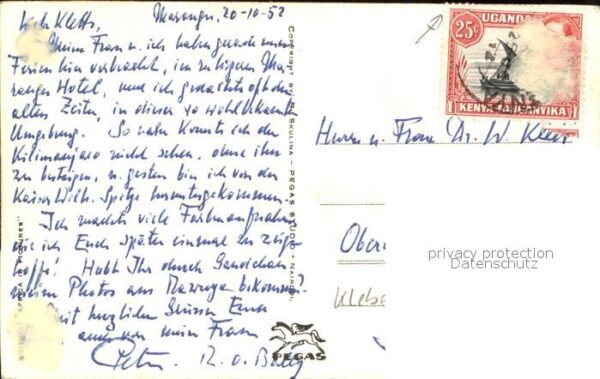 Marangu, 20-10-52
Meine Frau u. ich haben gerade unsere
Ferien hier verbracht, im hiesigen Ma-
rangu Hotel, und ich gedachte oft der
alten Zeiten, in dieser so wohlbekannten
Umgebung. So nahe konnte ich den
Kilimanjaro nicht sehen, ohne ihn
zu besteigen, u. gestern bin ich von der
Kaiser Wilh. Spitze heruntergekommen.
Ich machte viele Farbenaufnahmen
die ich Euch später einmal zu zeigen
hoffe! Habt Ihr durch
meine Photos aus bekommen?
mit herzlichen Grüssen Euer
auch von meiner Frau
Peter R. O. Bally
COPYRIGHT BY SKULINA - PEGAS STUDIO - NAIROBI
AFRICA IN PICTURES
PEGAS
25c
UGANDA
KENYA TANGANYIKA
Herrn u. Frau Dr. W.
Ober
Klebe
privacy protection
Datenschutz